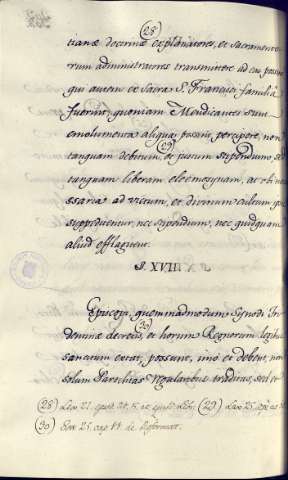 (28)
tianæ doctrinæ explanatores, et Sacramento-
rum administratores transmittere ad eas
qui autem ex Sacra S. Francisci familiâ
fuerint, quoniam Mendicantes sunt
emolumenta aliqua percipere, non
(29)
tanquam debitum, et justum stipendium sed
tanquam liberam eleemosynam, ac
ssaria ad victum, et divinum cultum
suppeditentur, nec stipendium, nec quidquam
aliud efflagitent.
§. XVIII
Episcopi, quemadmodum Synodi Tri-
(30)
dentinæ decretis, et horum Regnorum legibus
sancitum extat, possunt, imò et debent, non
solum Parochias regularibus traditas, sed
(28) Lex 21. (29) Lex 25.
(30) Sess 25. cap 11. de Reformat.